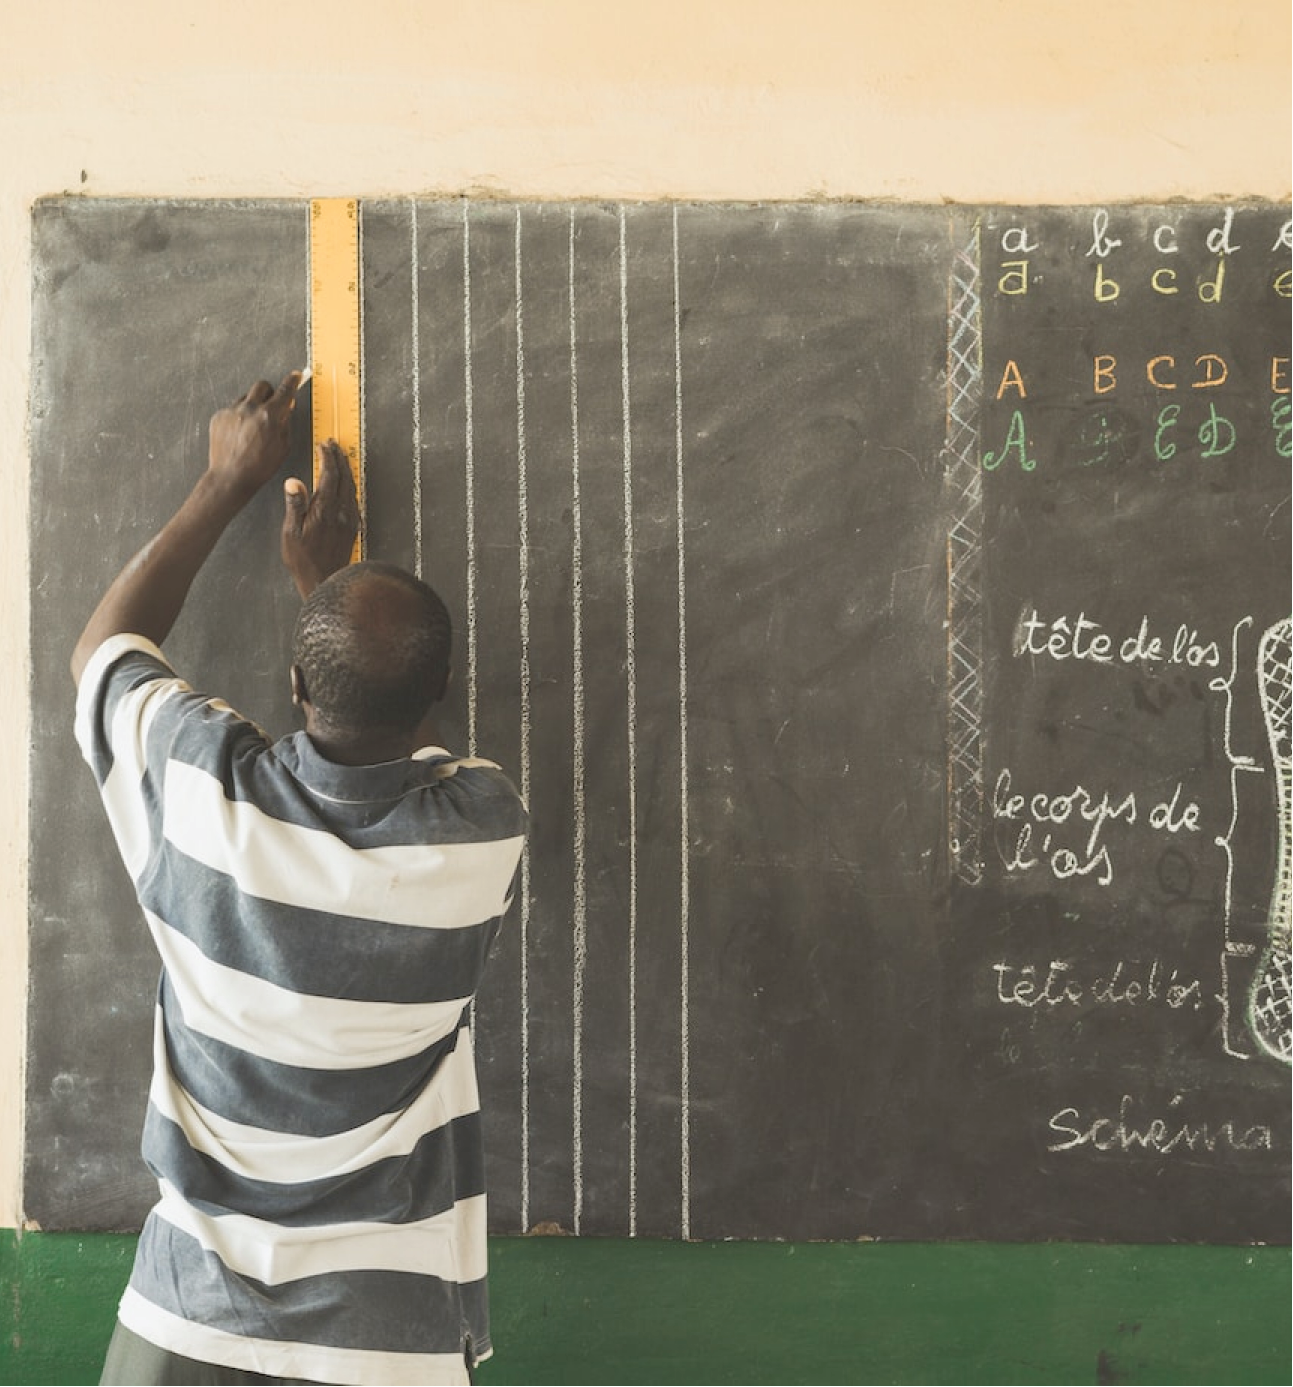 a b c d e
a b c d e
A B C D E
A C D E
tête de l'os
le corps de
l'os
tête de l'os
Schéma